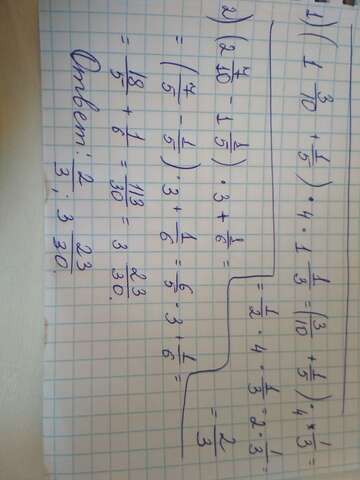 1) (1 3/10 + 1/5) · 4 · 1 1/3 = (3/10 + 1/5) · 4 * 1/3 =
= 1/2 · 4 · 1/3 = 2 · 1/3 =
= 2/3
2) (2 7/10 - 1 1/5) · 3 + 1/6 =
= (7/5 - 1/5) · 3 + 1/6 = 6/5 · 3 + 1/6 =
= 18/5 + 1/6 = 113/30 = 3 23/30.
Ответ: 2/3; 3 23/30.